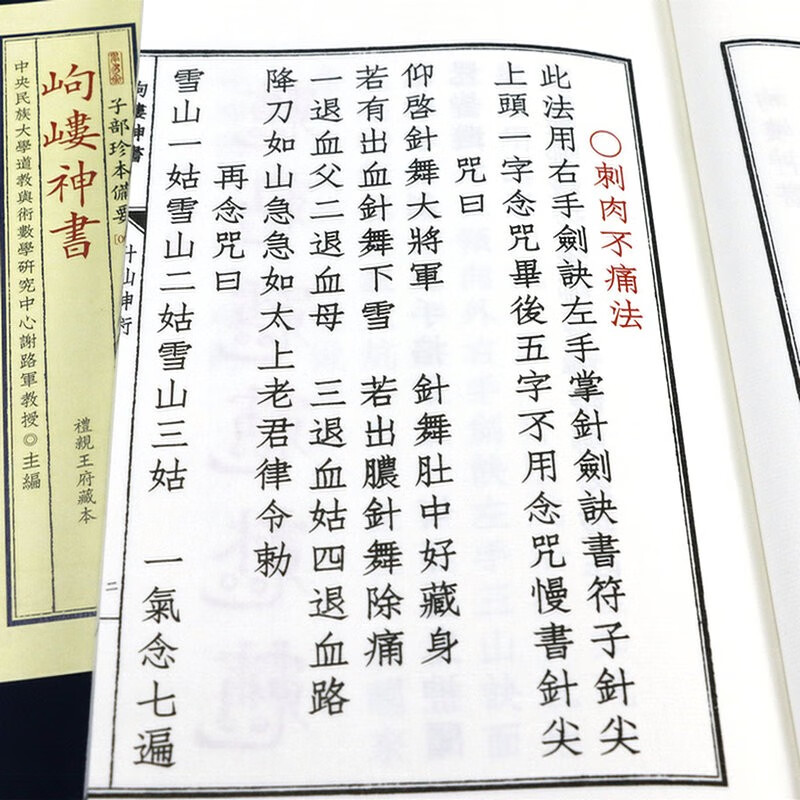 〇刺肉不痛法
此法用右手劍訣左手掌針劍訣書符子針尖
上頭一字念咒畢後五字不用念咒慢書針尖
咒曰
仰啓針舞大將軍 針舞肚中好藏身
若有出血針舞下雪 若出膿針舞除痛
一退血父二退血母 三退血姑四退血路
降刀如山急急如太上老君律令勅
再念咒曰
雪山一姑雪山二姑雪山三姑 一氣念七遍
二
子部珍本備要
岣嶁神書
中央民族大學道教與術數學研究中心謝路軍教授◎主編
禮親王府藏本